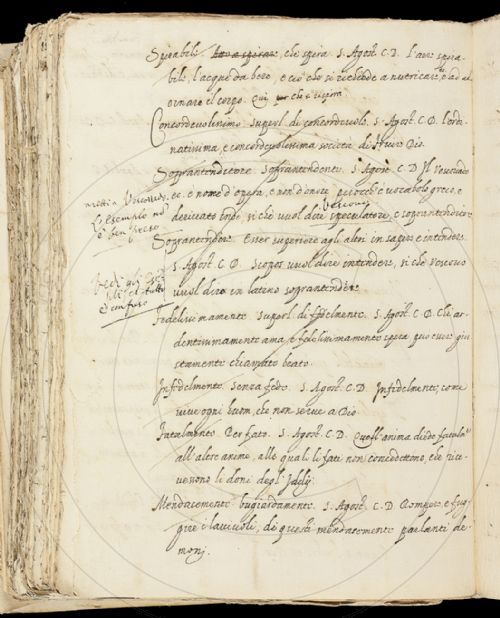 Spirabile. che spera. S. Agost. C. D. L'aere spira-
bile, l'acque da bere, e ciò che si richiede a nutricare, e ad ad
ornare il corpo. Qui che si spira.
Concordevolissimo. Superl. di concordevole. S. Agost. C. D. L'ordi-
natissima, e concordevolissima società di Dio.
Soprantenditore. Soprantendente. S. Agost. C. D. Il Vescovado
ec. è nome d'opera, e non d'onore, è vocabolo greco, e
Vescovo
derivato indi, sì che vuol dire speculatore, e soprantenditore
metti a Vescovado,
l'esempio non
è ben preso
Soprantendere. Esser superiore agli altri in sapere e intendere.
S. Agost. C. D. Scopos vuol dire intendere, sì che Vescovo
vuol dire in latino soprantendere.
è confuso
Fedelissimamente. Superl. di fedelmente. S. Agost. C. D. Chi ar-
dentissimamente ama, e fedelissimamente spera, può esser giu-
stamente chiamato beato.
Infedelmente. Senza fede. S. Agost. C. D. Infedelmente, come
vive ogni huom, che non serve a Dio.
Fatalmente. Per fato. S. Agost. C. D. Quell'anima diede
all'altre anime, alle quali li fati non concedettono, che rice-
vessono li doni degl'Iddij.
Mendacemente. bugiardamente. S. Agost. C. D. Rompere, e fug-
gire i lacciuoli, di questi mendacemente parlanti de-
monj.